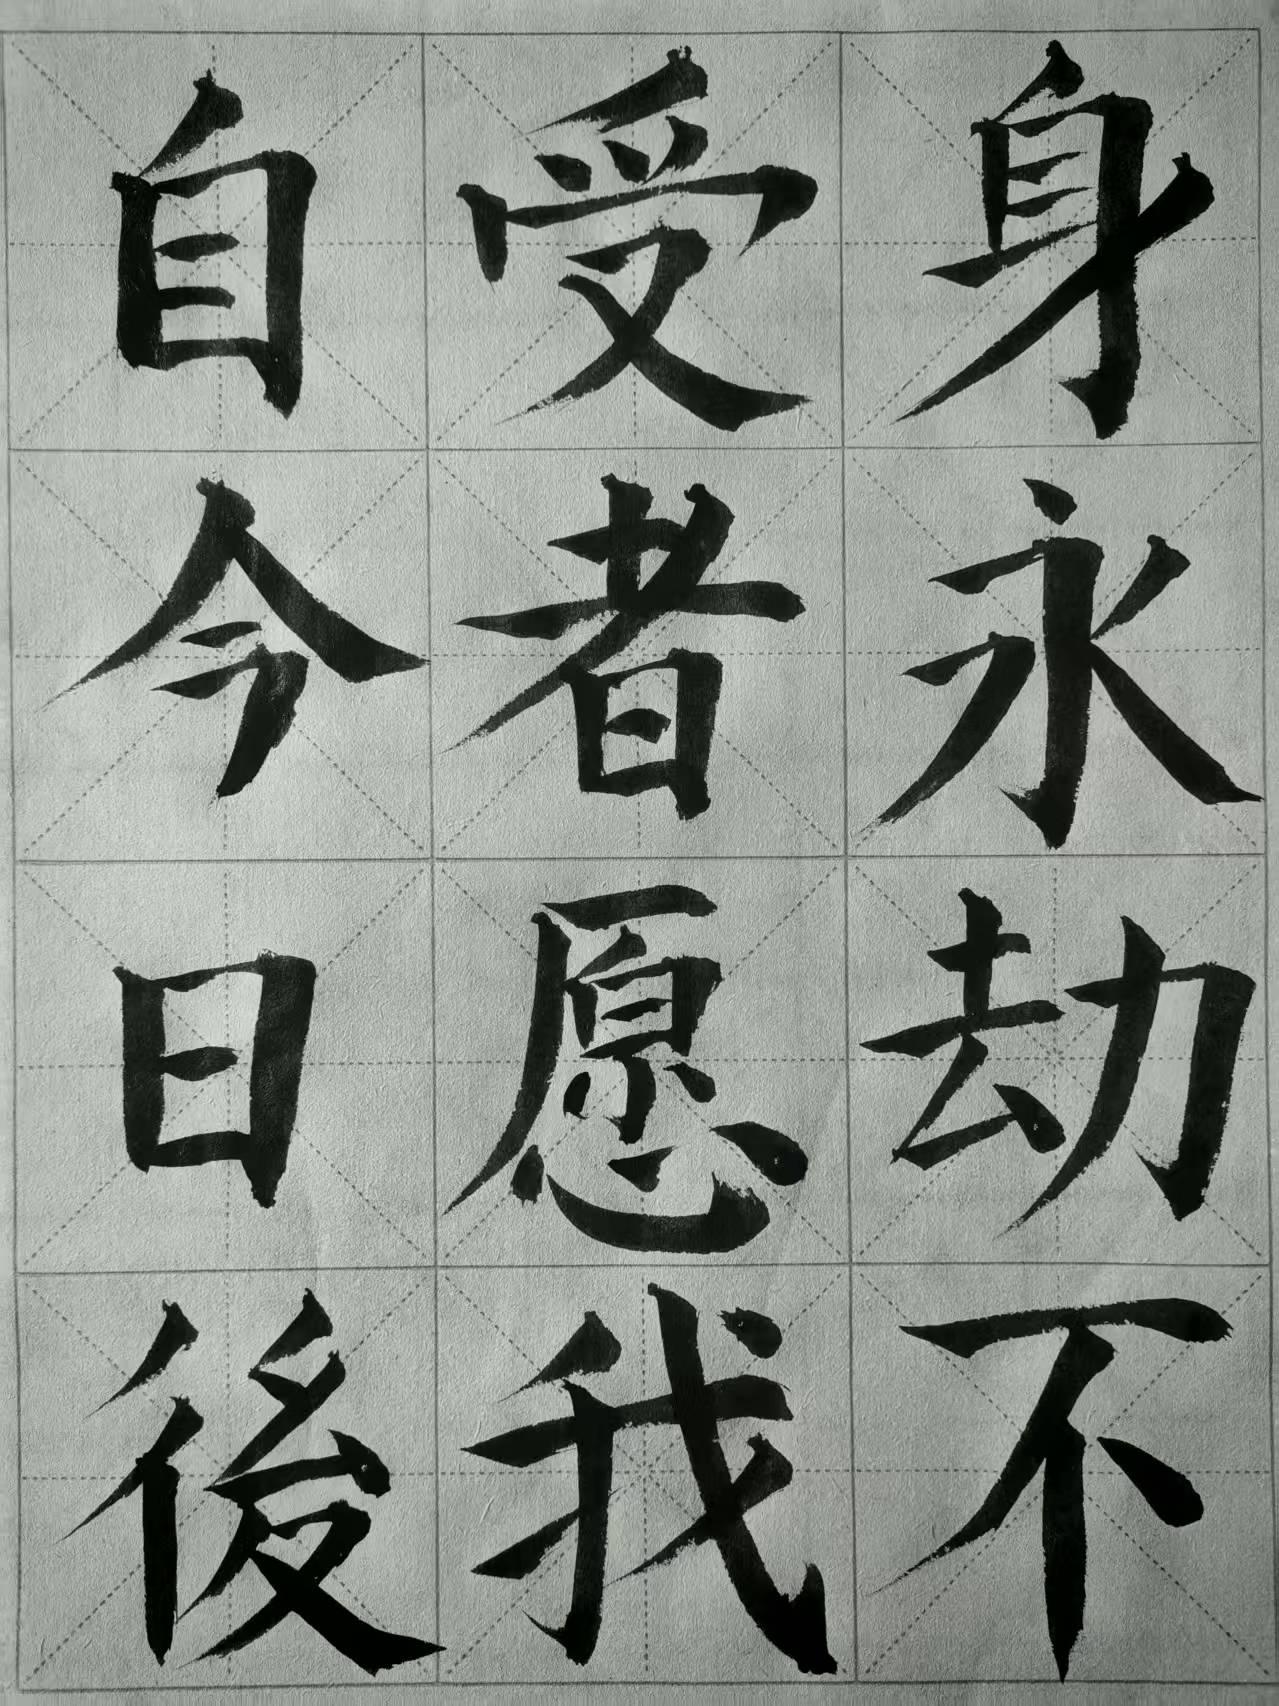 身永劫不
受者愿我
自今日後